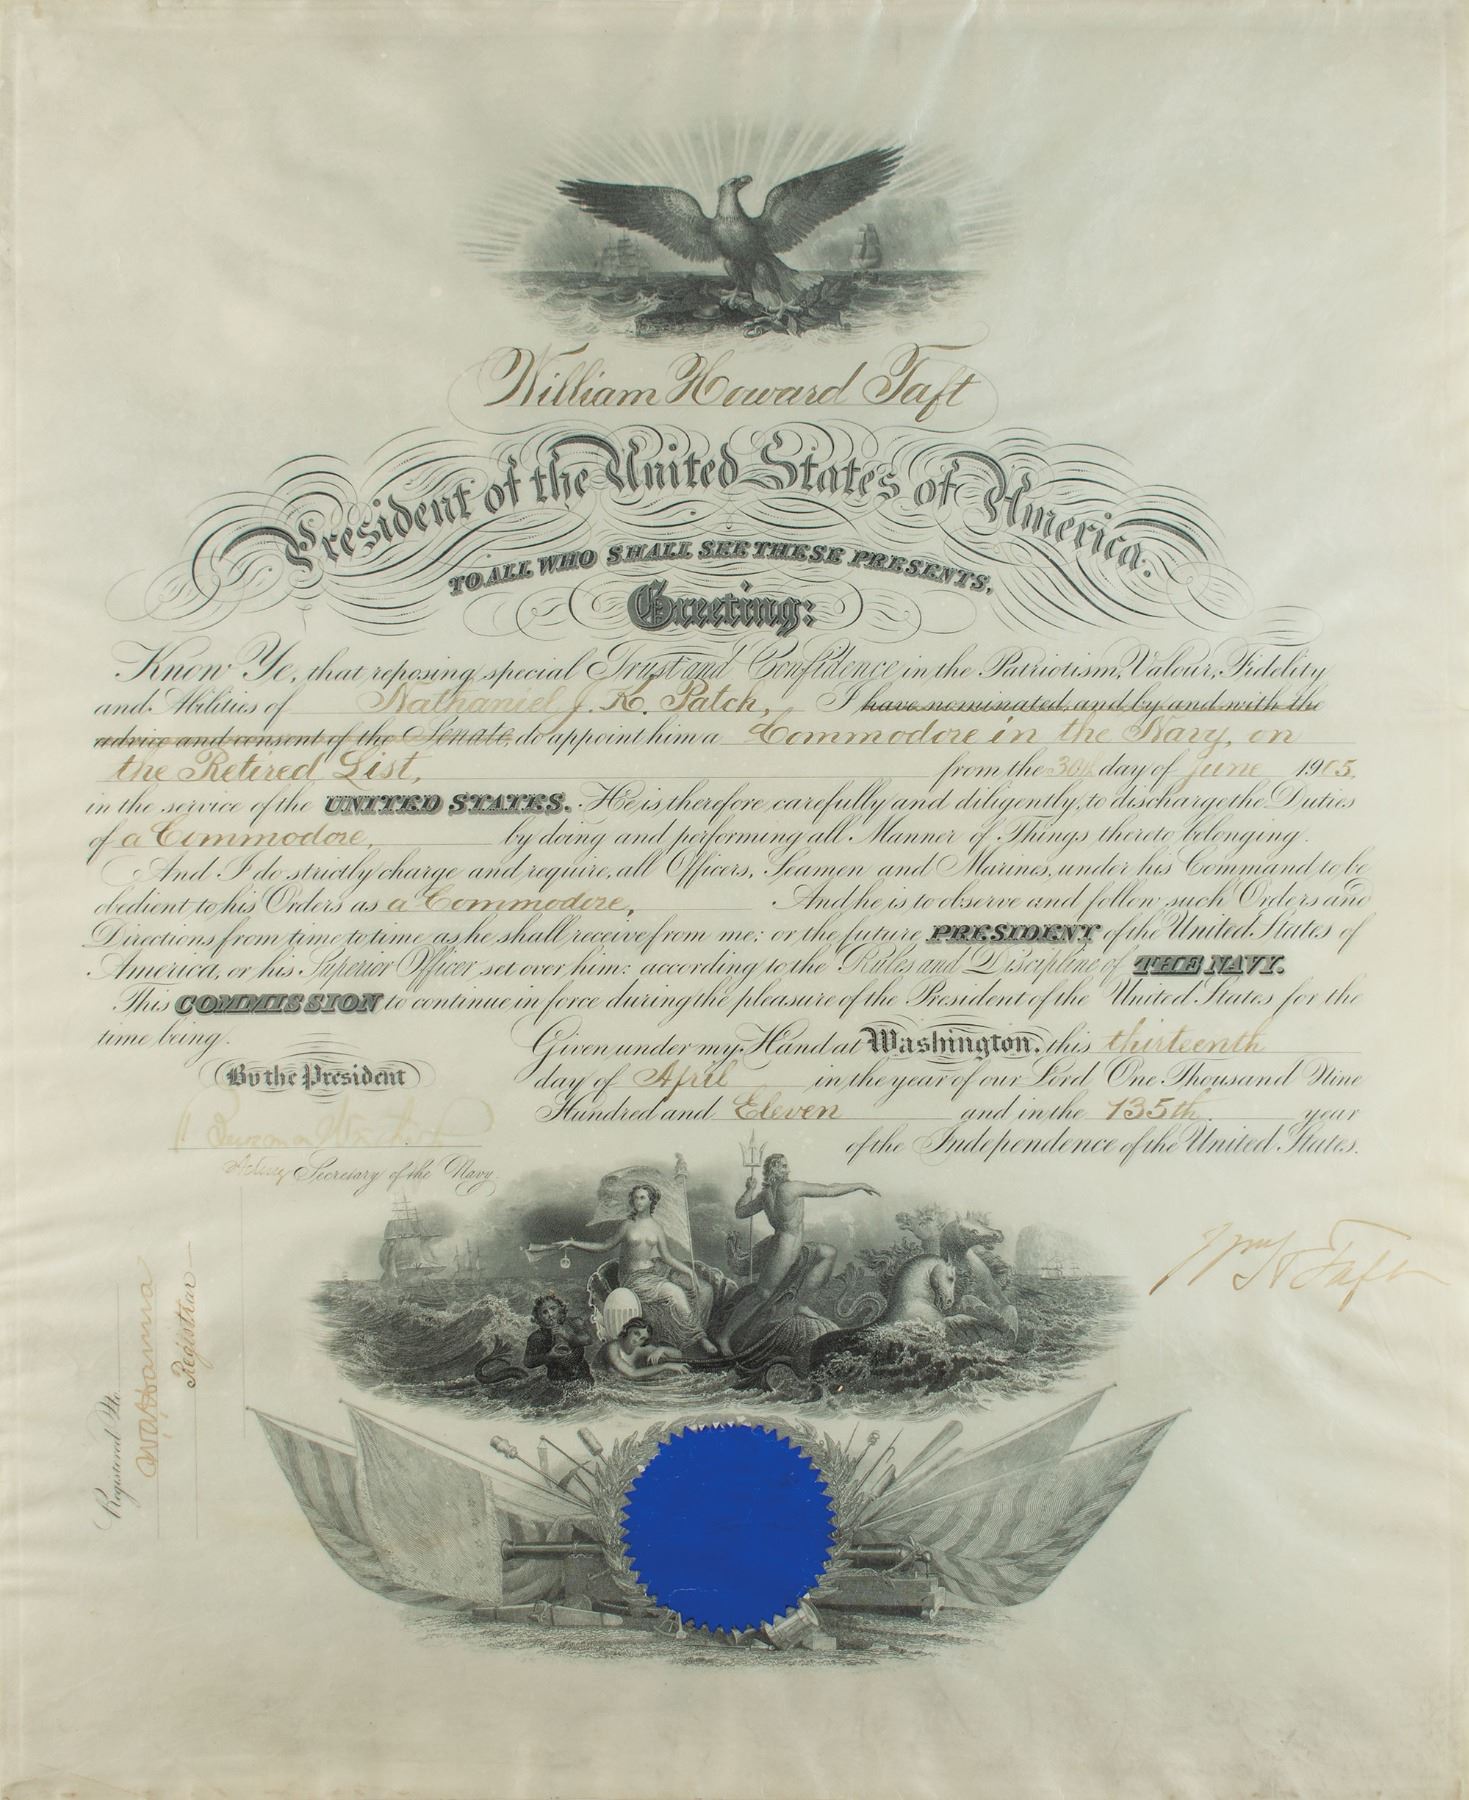 William Howard Taft
President of the United States of America.
TO ALL WHO SHALL SEE THESE PRESENTS,
Greeting:
Know Ye, that reposing special Trust and Confidence in the Patriotism, Valour, Fidelity
and Abilities of Nathaniel J. K. Patch, I have nominated and by and with the
advice and consent of the Senate, do appoint him a Commodore in the Navy, on
the Retired List, from the 30th day of June 1905,
in the service of the UNITED STATES. He is therefore carefully and diligently, to discharge the Duties
of a Commodore, by doing and performing all Manner of Things thereto belonging.
And I do strictly charge and require, all Officers, Seamen and Marines, under his Command to be
obedient to his Orders as a Commodore, And he is to observe and follow such Orders and
Directions from time to time as he shall receive from me; or the future PRESIDENT of the United States of
America, or his Superior Officer set over him; according to the Rules and Discipline of THE NAVY.
This COMMISSION to continue in force during the pleasure of the President of the United States for the
time being.
Given under my Hand at Washington, this thirteenth
day of April in the year of our Lord One Thousand Nine
Hundred and Eleven and in the 135th year
of the Independence of the United States.
By the President
Acting Secretary of the Navy
Wm H Taft
Registered No.
Registrar